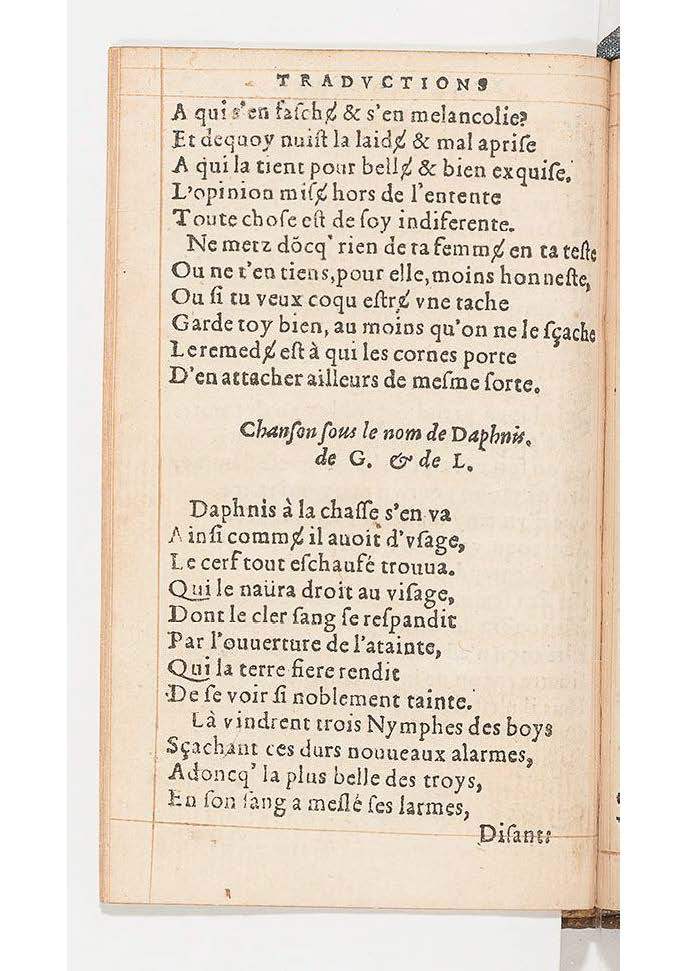 TRADVCTIONS
A qui s'en faſchɇ & s'en melancolie?
Et dequoy nuiſt la laidɇ & mal apriſe
A qui la tient pour bellɇ & bien exquiſe.
L'opinion miſɇ hors de l'entente
Toute choſe eſt de ſoy indiferente.
Ne metz dõcq' rien de ta femmɇ en ta teſte
Ou ne t'en tiens, pour elle, moins honneſte,
Ou ſi tu veux coqu eſtrɇ vne tache
Garde toy bien, au moins qu'on ne le ſçache
Le remedɇ eſt à qui les cornes porte
D'en attacher ailleurs de meſme ſorte.
Chanſon ſous le nom de Daphnis.
de G. & de L.
Daphnis à la chaſſe s'en va
Ainſi commɇ il auoit d'vſage,
Le cerf tout eſchaufé trouua.
Qui le naüra droit au viſage,
Dont le cler ſang ſe reſpandit
Par l'ouuerture de l'atainte,
Qui la terre fiere rendit
De ſe voir ſi noblement tainte.
Là vindrent trois Nymphes des boys
Sçachant ces durs nouueaux alarmes,
Adoncq' la plus belle des troys,
En ſon ſang a meſlé ſes larmes,
Diſant: